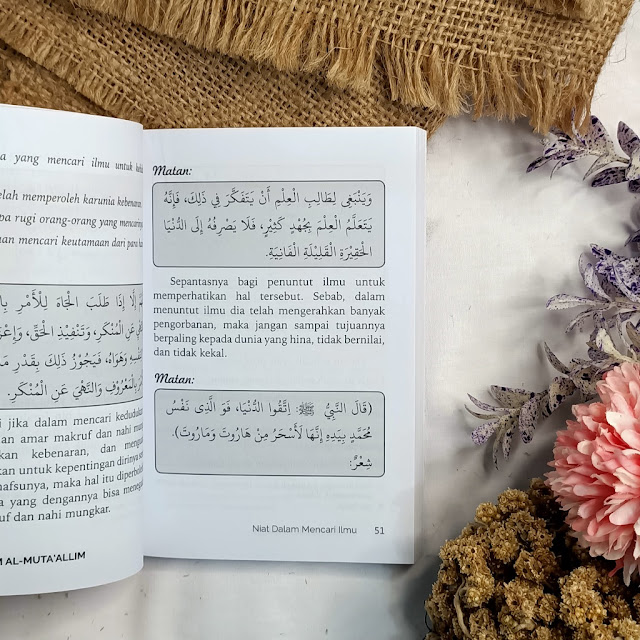 a yang mencari ilmu untuk
elah memperoleh karunia kebenaran,
pa rugi orang-orang yang mencarinya
nan mencari keutamaan dari para
إِلَّا إِذَا طَلَبَ الْجَاهَ لِلْأَمْرِ
عَنِ الْمُنْكَرِ، وَتَنْفِيذِ الْحَقِّ،
وَهَوَاهُ، فَيَجُوْزُ ذَلِكَ بِقَدْرِ
بِالْمَعْرُوْفِ وَالنَّهْيَ عَنِ الْمُنْكَرِ.
i jika dalam mencari keduduka
an amar makruf dan nahi mu
kan kebenaran, dan mengu
kan untuk kepentingan dirinya se
nafsunya, maka hal itu diperbole
a yang dengannya bisa meneg
uf dan nahi mungkar.
M AL-MUTA'ALLIM
Matan:
وَيَنْبَغِي لِطَالِبِ الْعِلْمِ أَنْ يَتَفَكَّرَ فِي ذَلِكَ، فَإِنَّهُ
يَتَعَلَّمُ الْعِلْمَ بِجُهْدٍ كَثِيْرٍ، فَلَا يَصْرِفُهُ إِلَى الدُّنْيَا
الْحَقِيْرَةِ الْقَلِيْلَةِ الْفَانِيَةِ.
Sepantasnya bagi penuntut ilmu untuk
memperhatikan hal tersebut. Sebab, dalam
menuntut ilmu dia telah mengerahkan banyak
pengorbanan, maka jangan sampai tujuannya
berpaling kepada dunia yang hina, tidak bernilai,
dan tidak kekal.
Matan:
(قَالَ النَّبِيُّ ﷺ: اِتَّقُوا الدُّنْيَا، فَوَ الَّذِى نَفْسُ
مُحَمَّدٍ بِيَدِهِ إِنَّهَا لَأَسْحَرُ مِنْ هَارُوتَ وَمَارُوتَ).
شِعْرٌ:
Niat Dalam Mencari Ilmu 51